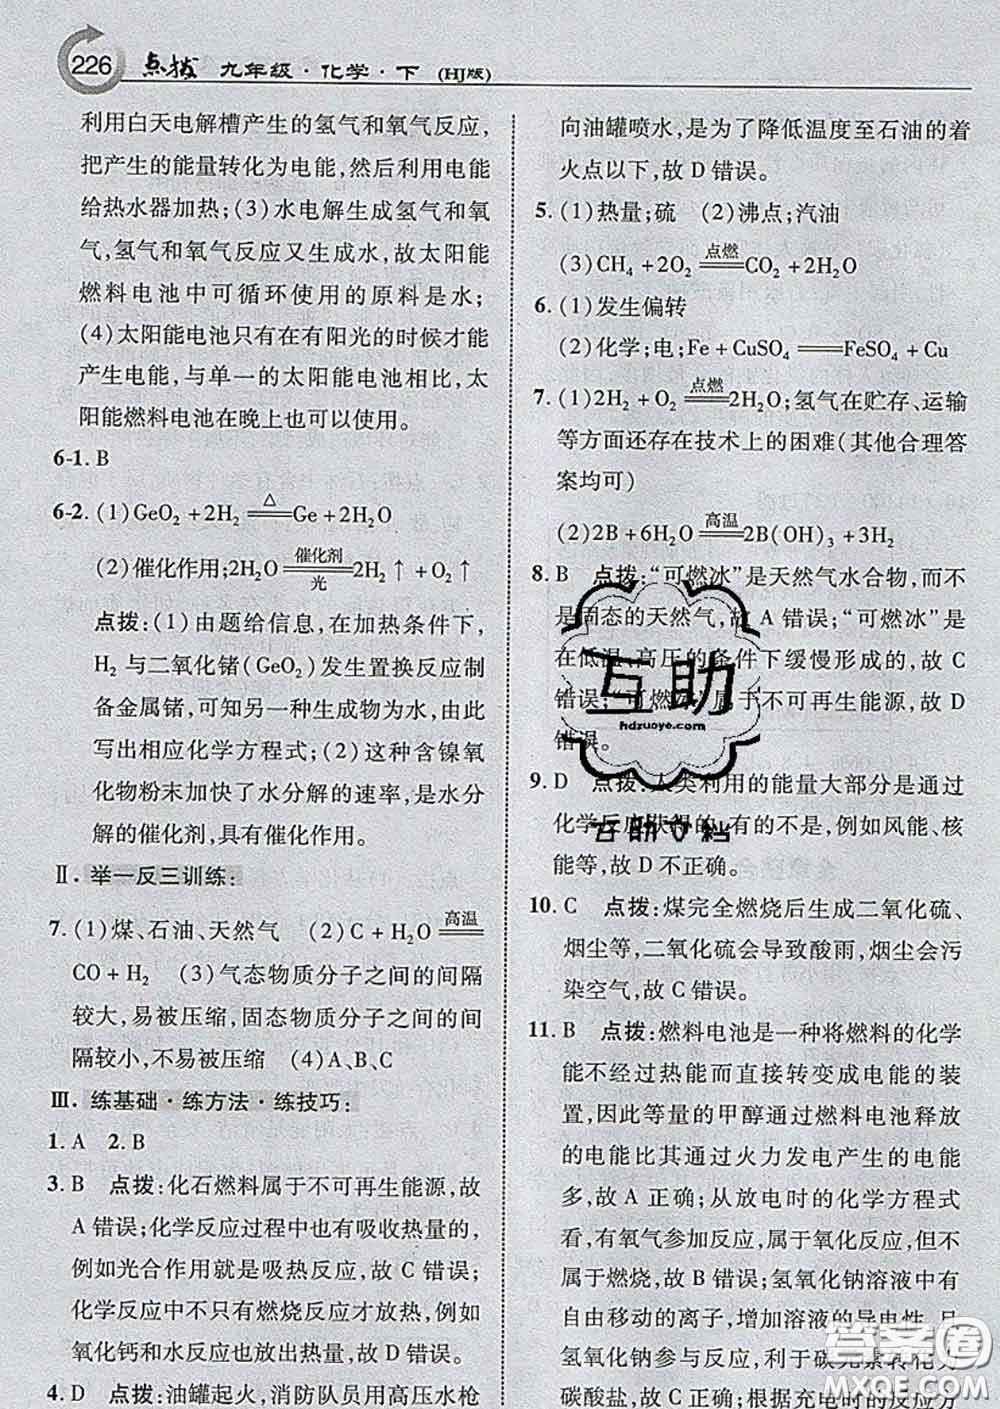 226 点拨 九年级·化学·下 (HJ版)
利用白天电解槽产生的氢气和氧气反应,
把产生的能量转化为电能,然后利用电能
给热水器加热;(3)水电解生成氢气和氧
气,氢气和氧气反应又生成水,故太阳能
燃料电池中可循环使用的原料是水;
(4)太阳能电池只有在有阳光的时候才能
产生电能,与单一的太阳能电池相比,太
阳能燃料电池在晚上也可以使用。
6-1. B
6-2. (1)GeO₂+2H₂ ══△══ Ge+2H₂O
(2)催化作用;2H₂O ══催化剂/光══ 2H₂↑+O₂↑
点拨:(1)由题给信息,在加热条件下,
H₂与二氧化锗(GeO₂)发生置换反应制
备金属锗,可知另一种生成物为水,由此
写出相应化学方程式;(2)这种含镍氧
化物粉末加快了水分解的速率,是水分
解的催化剂,具有催化作用。
Ⅱ. 举一反三训练:
7. (1)煤、石油、天然气 (2)C+H₂O ══高温══
CO+H₂ (3)气态物质分子之间的间隔
较大,易被压缩,固态物质分子之间的间
隔较小,不易被压缩 (4)A、B、C
Ⅲ. 练基础·练方法·练技巧:
1. A 2. B
3. B 点拨:化石燃料属于不可再生能源,故
A错误;化学反应过程中也有吸收热量的,
例如光合作用就是吸热反应,故C错误;
化学反应中不只有燃烧反应才放热,例如
氧化钙和水反应也放出热量,故D错误。
4. D 点拨:油罐起火,消防队员用高压水枪
向油罐喷水,是为了降低温度至石油的着
火点以下,故D错误。
5. (1)热量;硫 (2)沸点;汽油
(3)CH₄+2O₂ ══点燃══ CO₂+2H₂O
6. (1)发生偏转
(2)化学;电;Fe+CuSO₄ ══ FeSO₄+Cu
7. (1)2H₂+O₂ ══点燃══ 2H₂O;氢气在贮存、运输
等方面还存在技术上的困难(其他合理答
案均可)
(2)2B+6H₂O ══高温══ 2B(OH)₃+3H₂
8. B 点拨:“可燃冰”是天然气水合物,而不
是固态的天然气,故A错误;“可燃冰”是
在低温、高压的条件下缓慢形成的,故C
错误;“可燃冰”属于不可再生能源,故D
错误。
9. D 点拨:人类利用的能量大部分是通过
化学反应获得的,有的不是,例如风能、核
能等,故D不正确。
10. C 点拨:煤完全燃烧后生成二氧化硫、
烟尘等,二氧化硫会导致酸雨,烟尘会污
染空气,故C错误。
11. B 点拨:燃料电池是一种将燃料的化学
能不经过热能而直接转变成电能的装
置,因此等量的甲醇通过燃料电池释放
的电能大于其通过火力发电产生的电能
多,故A正确;从放电时的化学方程式
看,有氧气参加反应,属于氧化反应,但不
属于燃烧,故B错误;氢氧化钠溶液中有
自由移动的离子,增加溶液的导电性,且
氢氧化钠参与反应,利于碳元素转化为
碳酸盐,故C正确;根据充电时的反应方
互助
hdzuoye.com
互助文档
答案圈
MXQE.COM